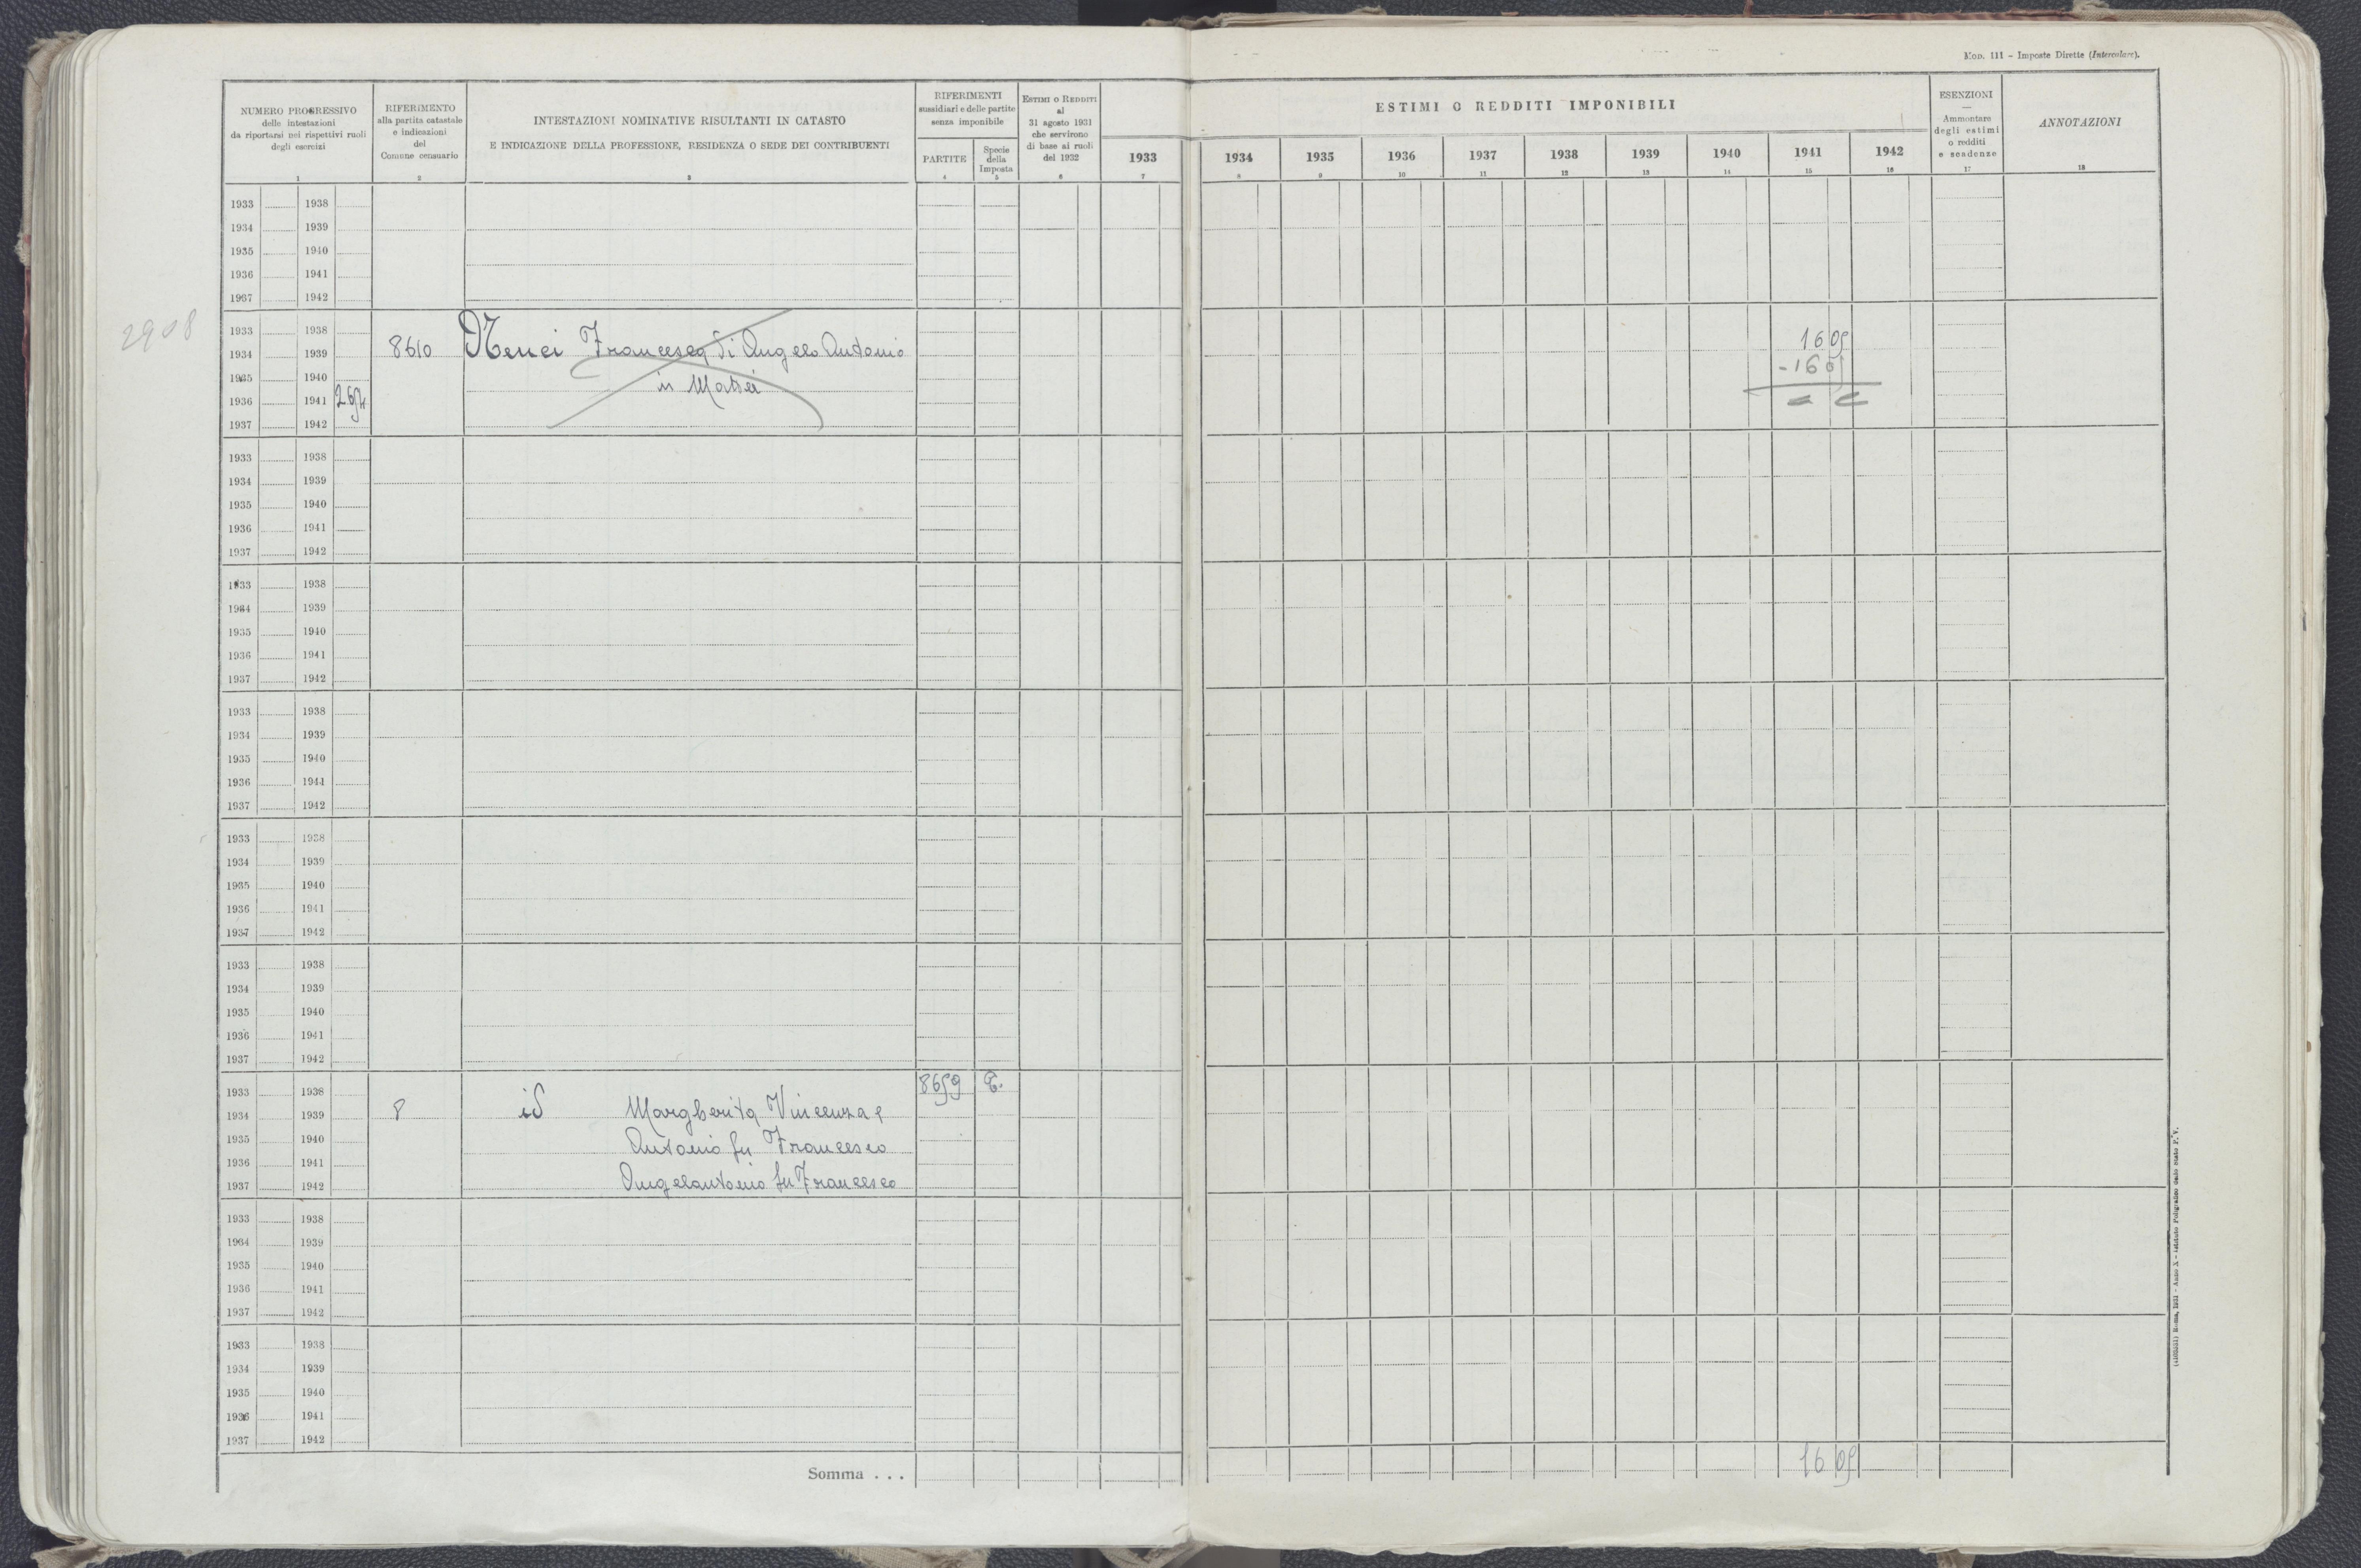 Mod. 111 - Imposte Dirette (Intercalare).
NUMERO PROGRESSIVO
delle intestazioni
da riportarsi nei rispettivi ruoli
degli esercizi
1
RIFERIMENTO
alla partita catastale
e indicazioni
del
Comune censuario
2
INTESTAZIONI NOMINATIVE RISULTANTI IN CATASTO
E INDICAZIONE DELLA PROFESSIONE, RESIDENZA O SEDE DEI CONTRIBUENTI
3
RIFERIMENTI
sussidiari e delle partite
senza imponibile
PARTITE
4
Specie
della
Imposta
5
ESTIMI O REDDITI
al
31 agosto 1931
che servirono
di base ai ruoli
del 1932
6
ESTIMI O REDDITI IMPONIBILI
1933 1934 1935 1936 1937 1938 1939 1940 1941 1942
7 8 9 10 11 12 13 14 15 16
ESENZIONI
—
Ammontare
degli estimi
o redditi
e scadenze
17
ANNOTAZIONI
18
1933 1938
1934 1939
1935 1940
1936 1941
1967 1942
2908
1933 1938
1934 1939 8610 Nenci Francesca di Angelo Antonio 16 05
1935 1940 in Mattei - 16 05
1936 1941 2692
1937 1942
1933 1938
1934 1939
1935 1940
1936 1941
1937 1942
1933 1938
1934 1939
1935 1940
1936 1941
1937 1942
1933 1938
1934 1939
1935 1940
1936 1941
1937 1942
1933 1938
1934 1939
1935 1940
1936 1941
1937 1942
1933 1938
1934 1939
1935 1940
1936 1941
1937 1942
1933 1938 8659
1934 1939 8 id Margherita Vincenza e
1935 1940 Antonio fu Francesco
1936 1941
1937 1942 Angelantonio fu Francesco
1933 1938
1934 1939
1935 1940
1936 1941
1937 1942
1933 1938
1934 1939
1935 1940
1936 1941
1937 1942
Somma . . . 16 05